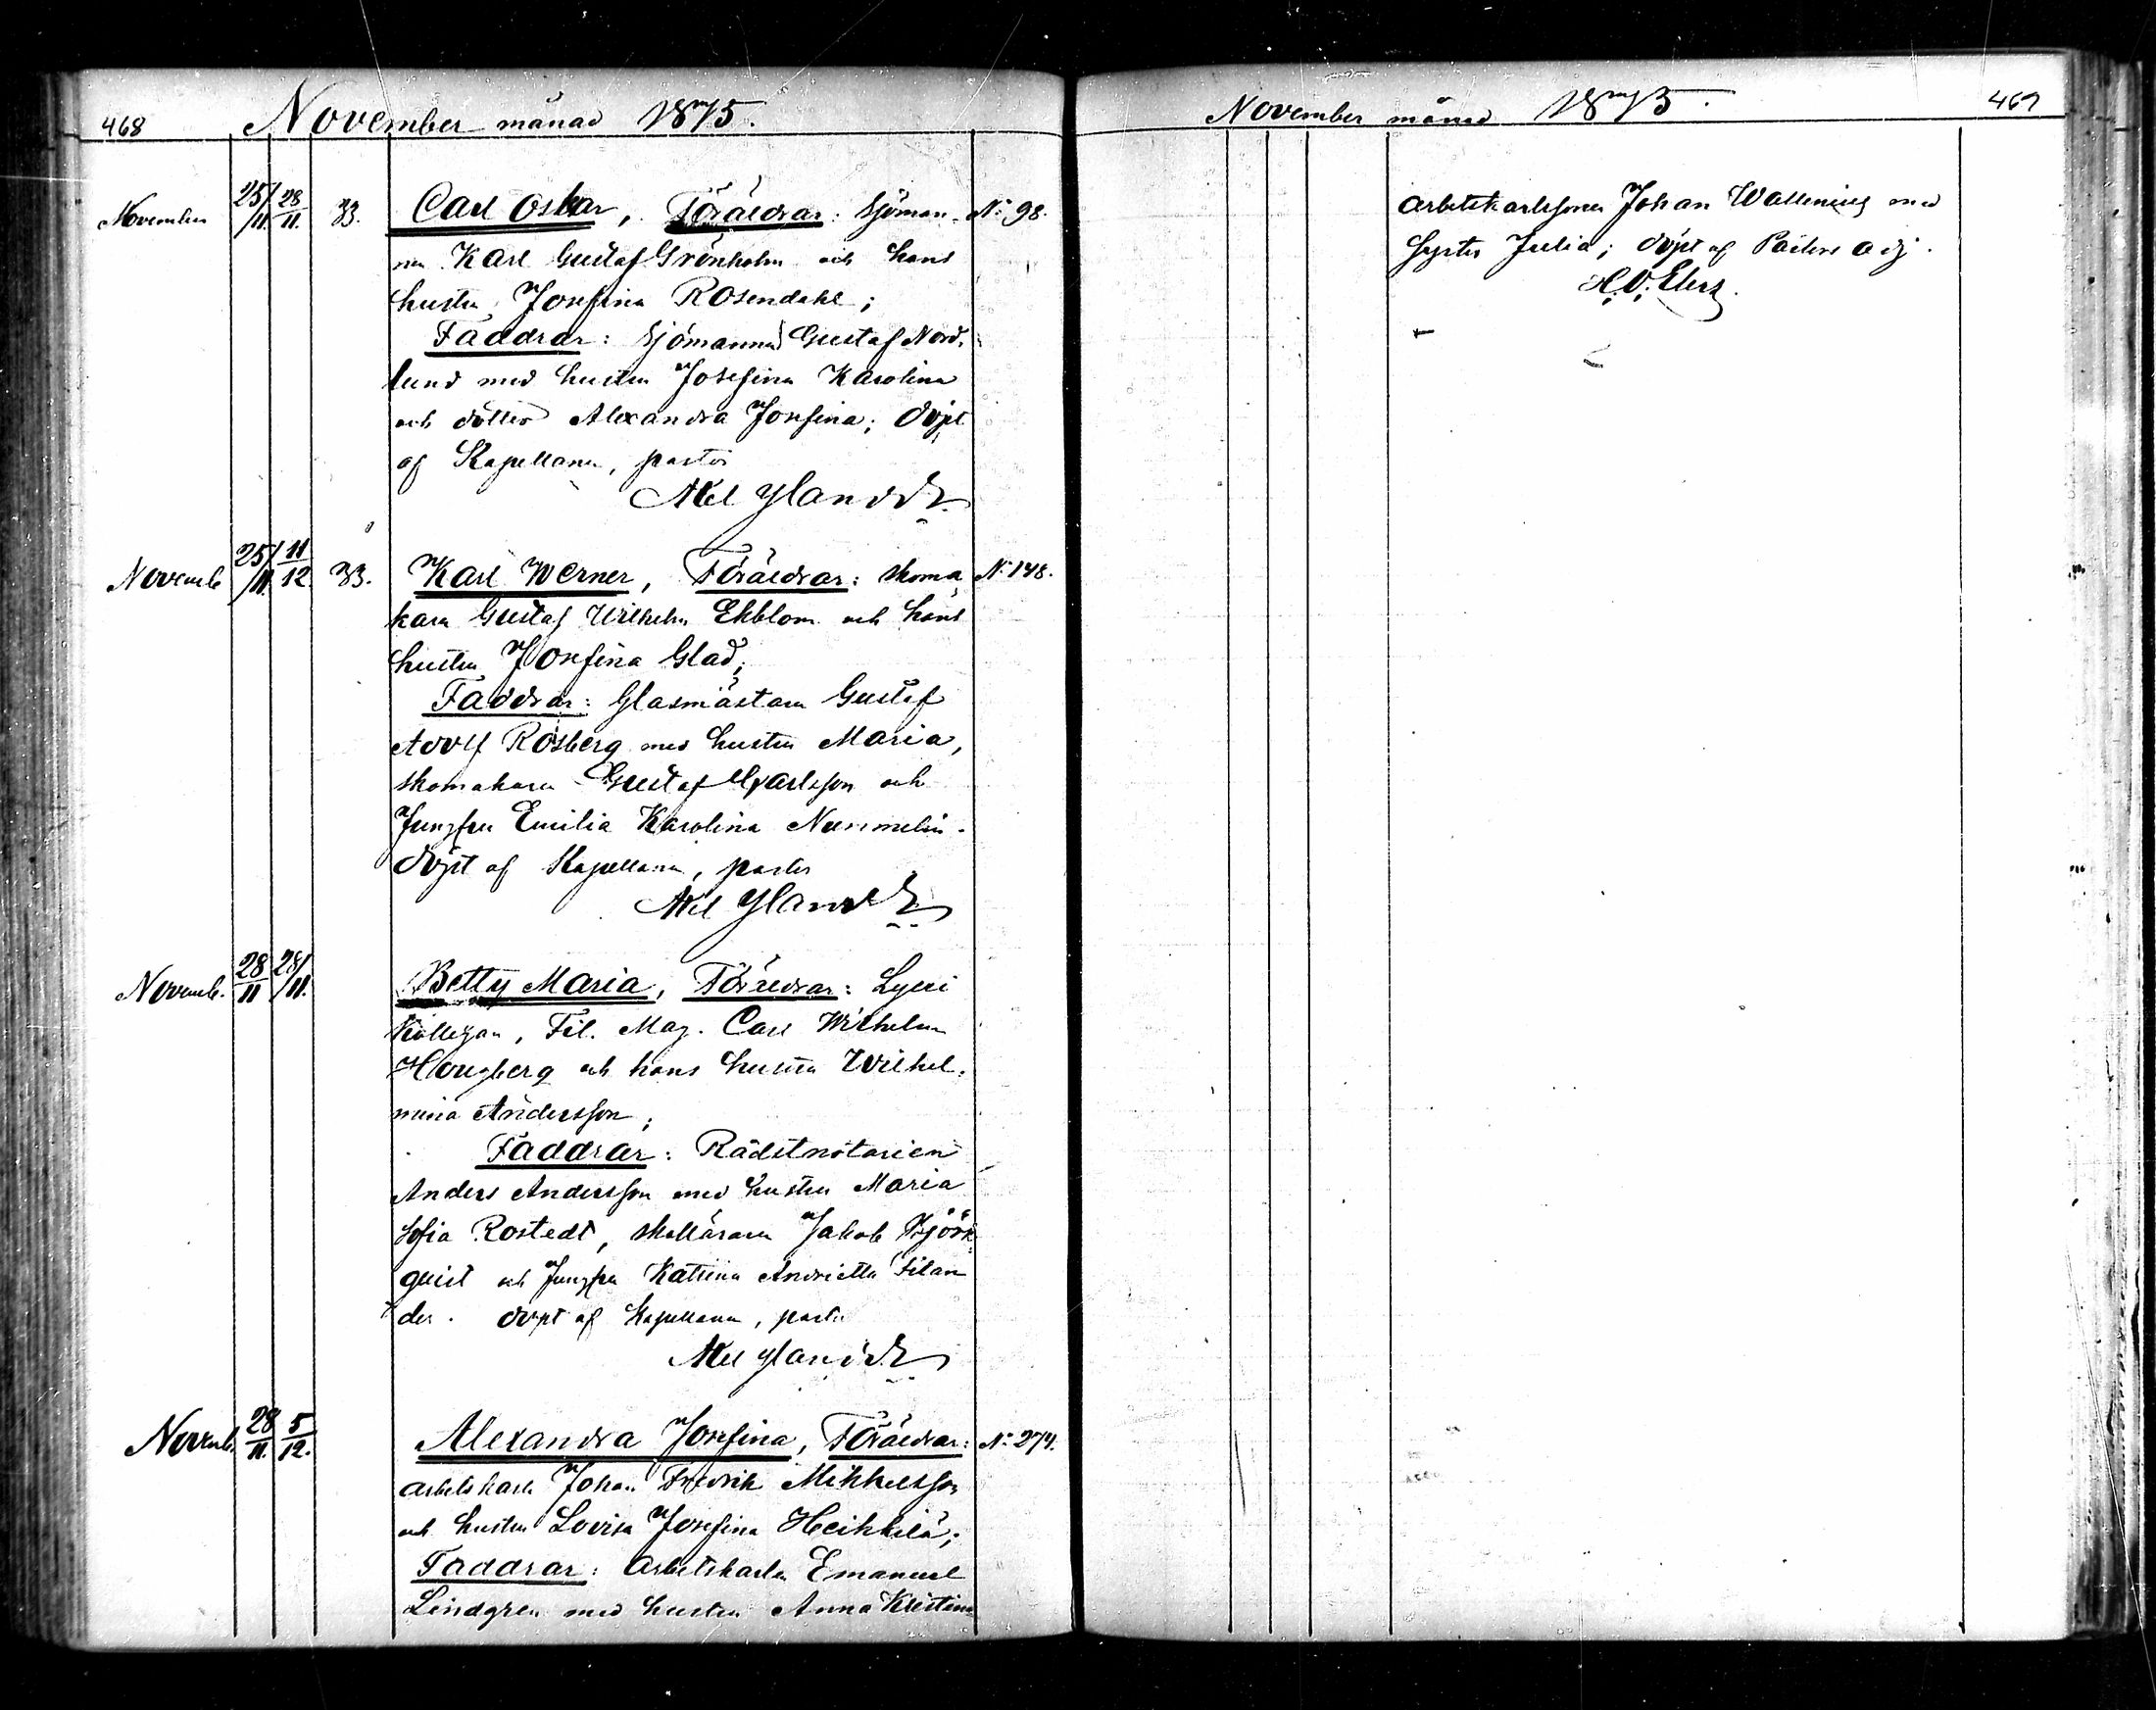 468 November månad 1875.
November 25/11. 28/11. Carl Oskar, Föräldrar: Sjöman- No 98.
nen Karl Gustaf Grönholm och hans
hustru Josefina Rosendahl;
Faddrar: Sjömannen Gustaf Nord-
lund med hustru Josefina Karolina
och dotter Alexandra Josefina; döpt
af Kapellanen, pastor
Axel Ylander
Novemb. 25/11. 11/12. Karl Werner, Föräldrar: skoma No 148.
karen Gustaf Wilhelm Ekblom och hans
hustru Josefina Glad;
Faddrar: Glasmästaren Gustaf
Adolf Rosberg med hustru Maria,
skomakaren Gustaf Karlsson och
Jungfru Emilia Karolina Nummelin.
döpt af Kapellanen, pastor
Axel Ylander
Novemb. 28/11 28/11. Betty Maria, Föräldrar: Lycei
Kollegan, Fil. Mag. Carl Wilhelm
Hougberg och hans hustru Wilhel-
mina Andersson;
Faddrar: Rådstnotarien
Anders Andersson med hustru Maria
Sofia Rostedt, skolläraren Jakob Björk-
quist och Jungfru Katrina Andrietta Filan
der. döpt af Kapellanen, pastor
Axel Ylander
Novemb. 28/11. 5/12. Alexandra Josefina, Föräldrar: No 274.
arbetskarlen Johan Fredrik Mikkelsson
och hustru Lovisa Josefina Heikkilä;
Faddrar: Arbetskarlen Emanuel
Lindgren med hustru Anna Kristina
November månad 1875. 469
arbetskarlssonen Johan Wallenius med
syster Julia; döpt af Pastors adj.
H.V. Elers.